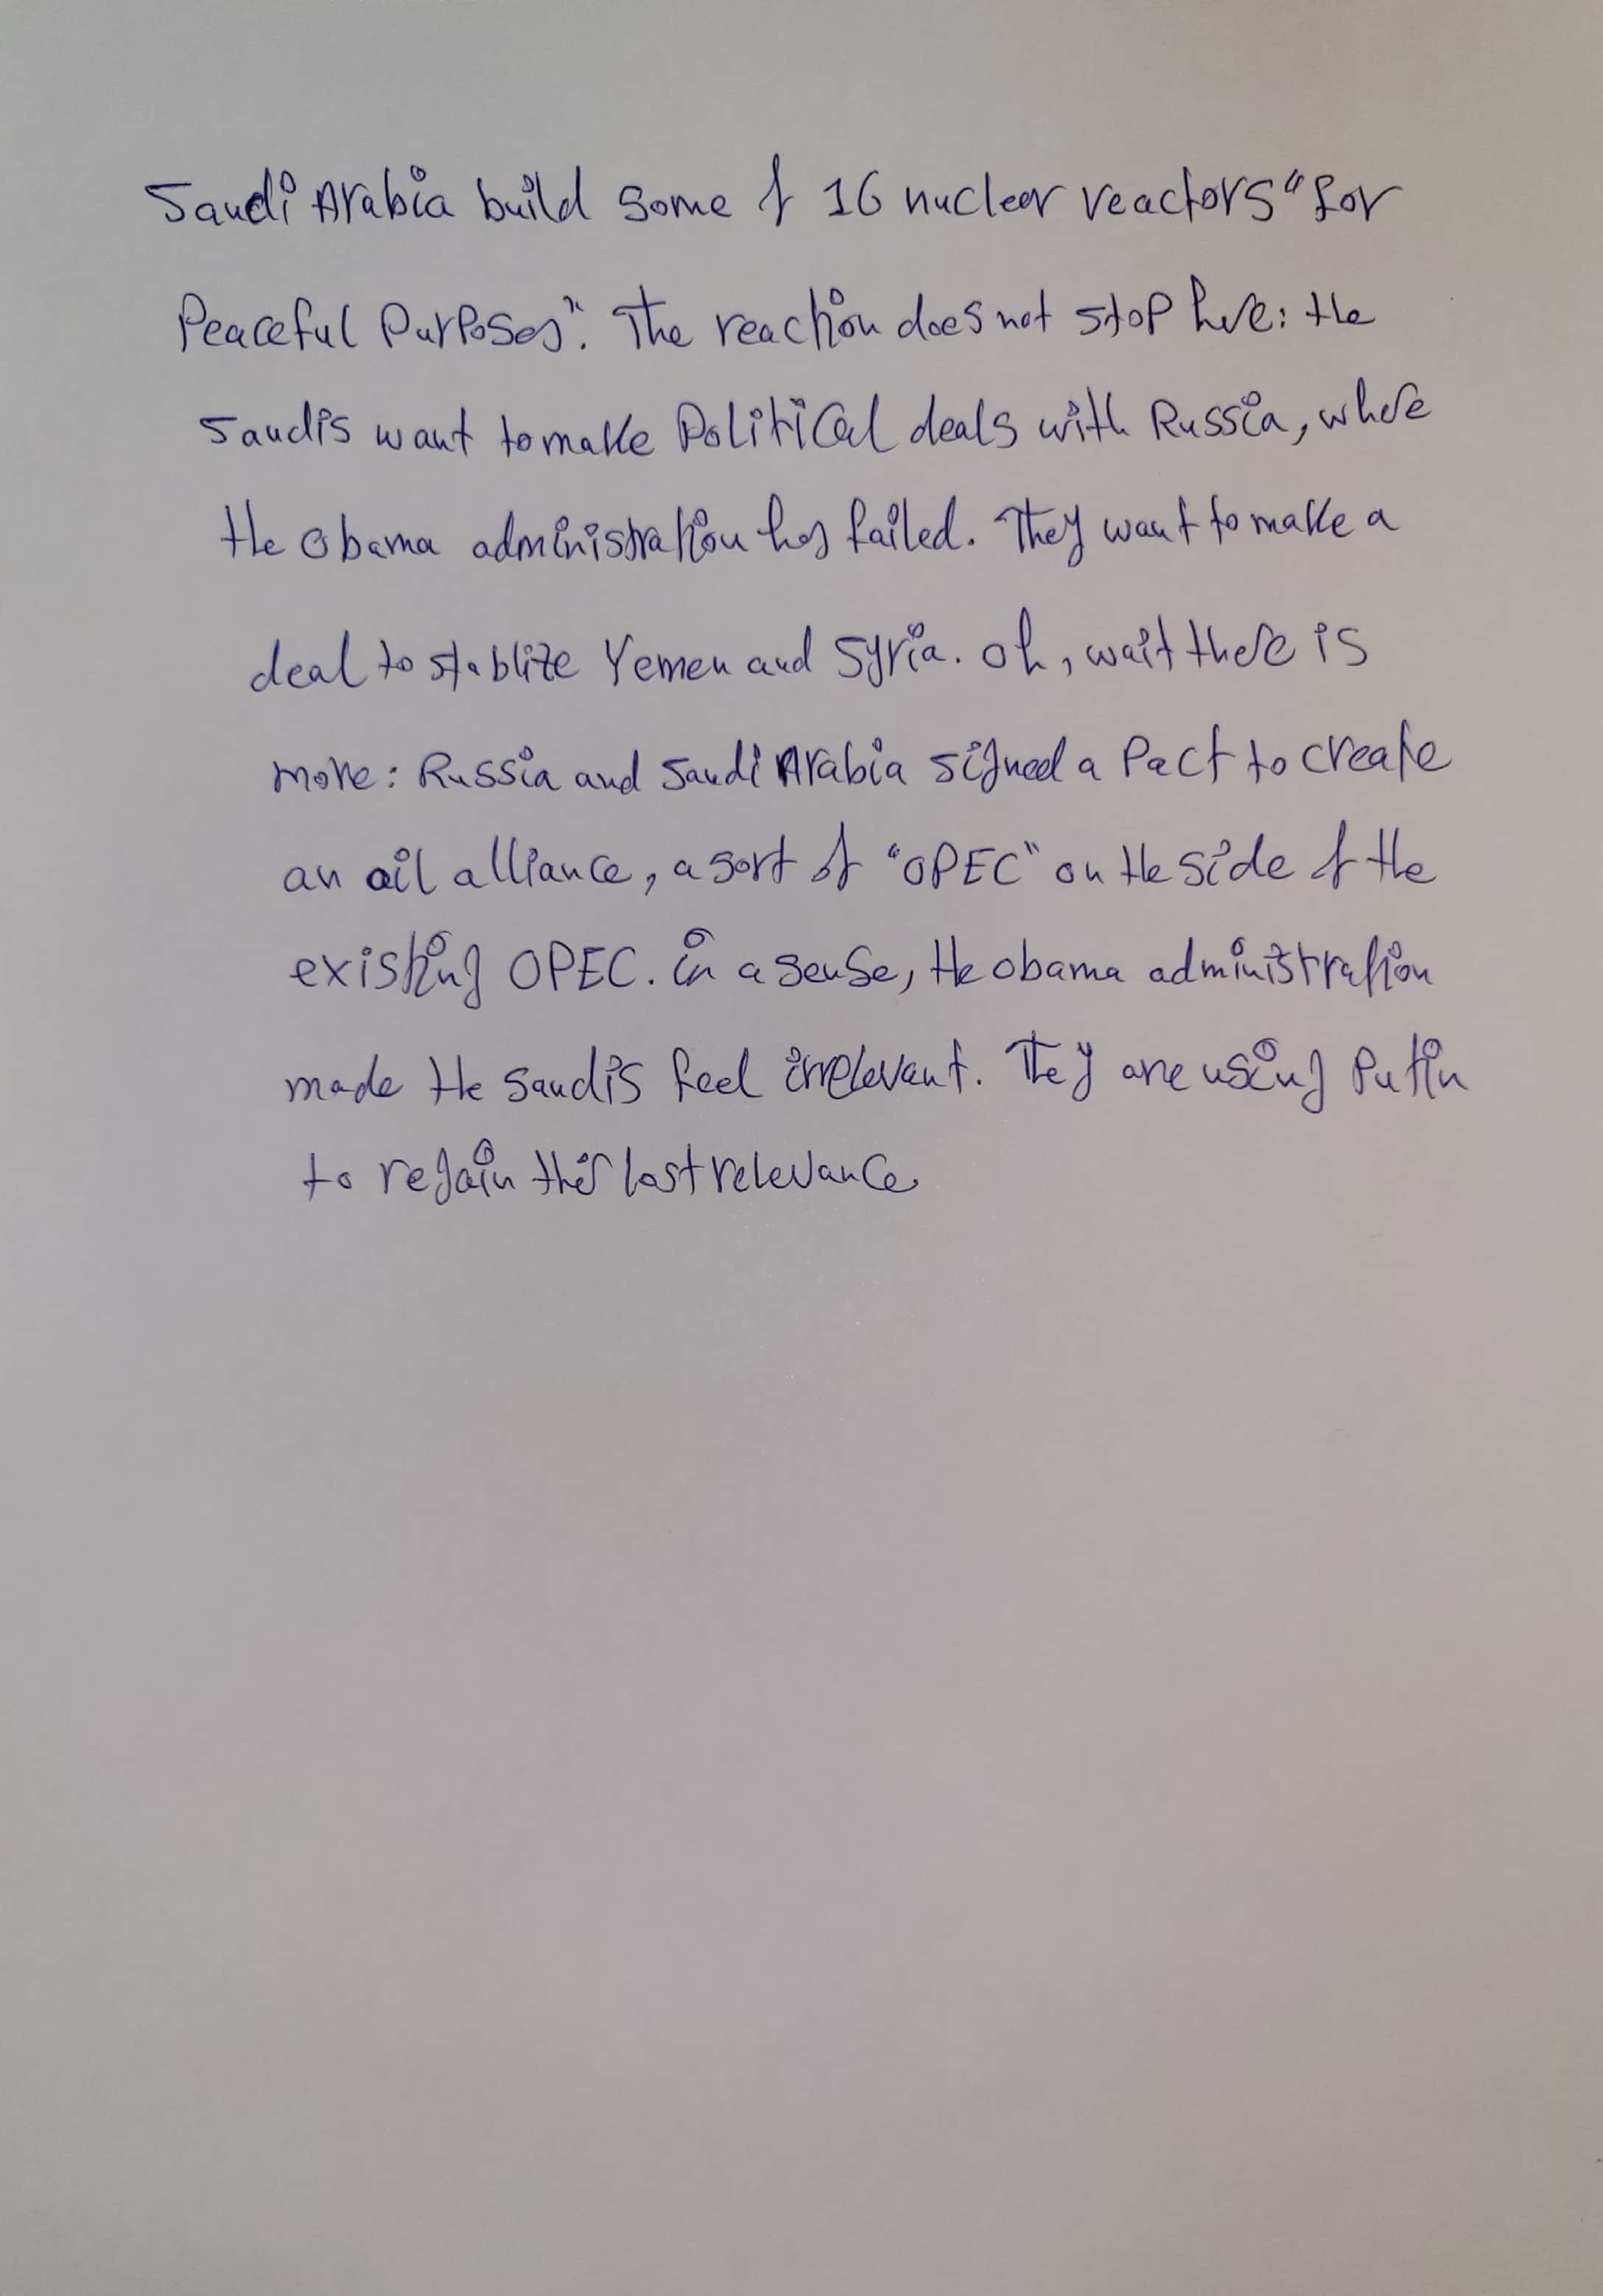 Saudi Arabia build some of 16 nuclear reactors "for
Peaceful Purposes". The reaction does not stop here: the
Saudis want to make Political deals with Russia, where
the Obama administration has failed. They want to make a
deal to stablize Yemen and Syria. Oh, wait there is
more: Russia and Saudi Arabia signed a Pact to create
an oil alliance, a sort of "OPEC" on the side of the
existing OPEC. In a sense, the Obama administration
made the Saudis feel irrelevant. They are using Putin
to regain their lost relevance